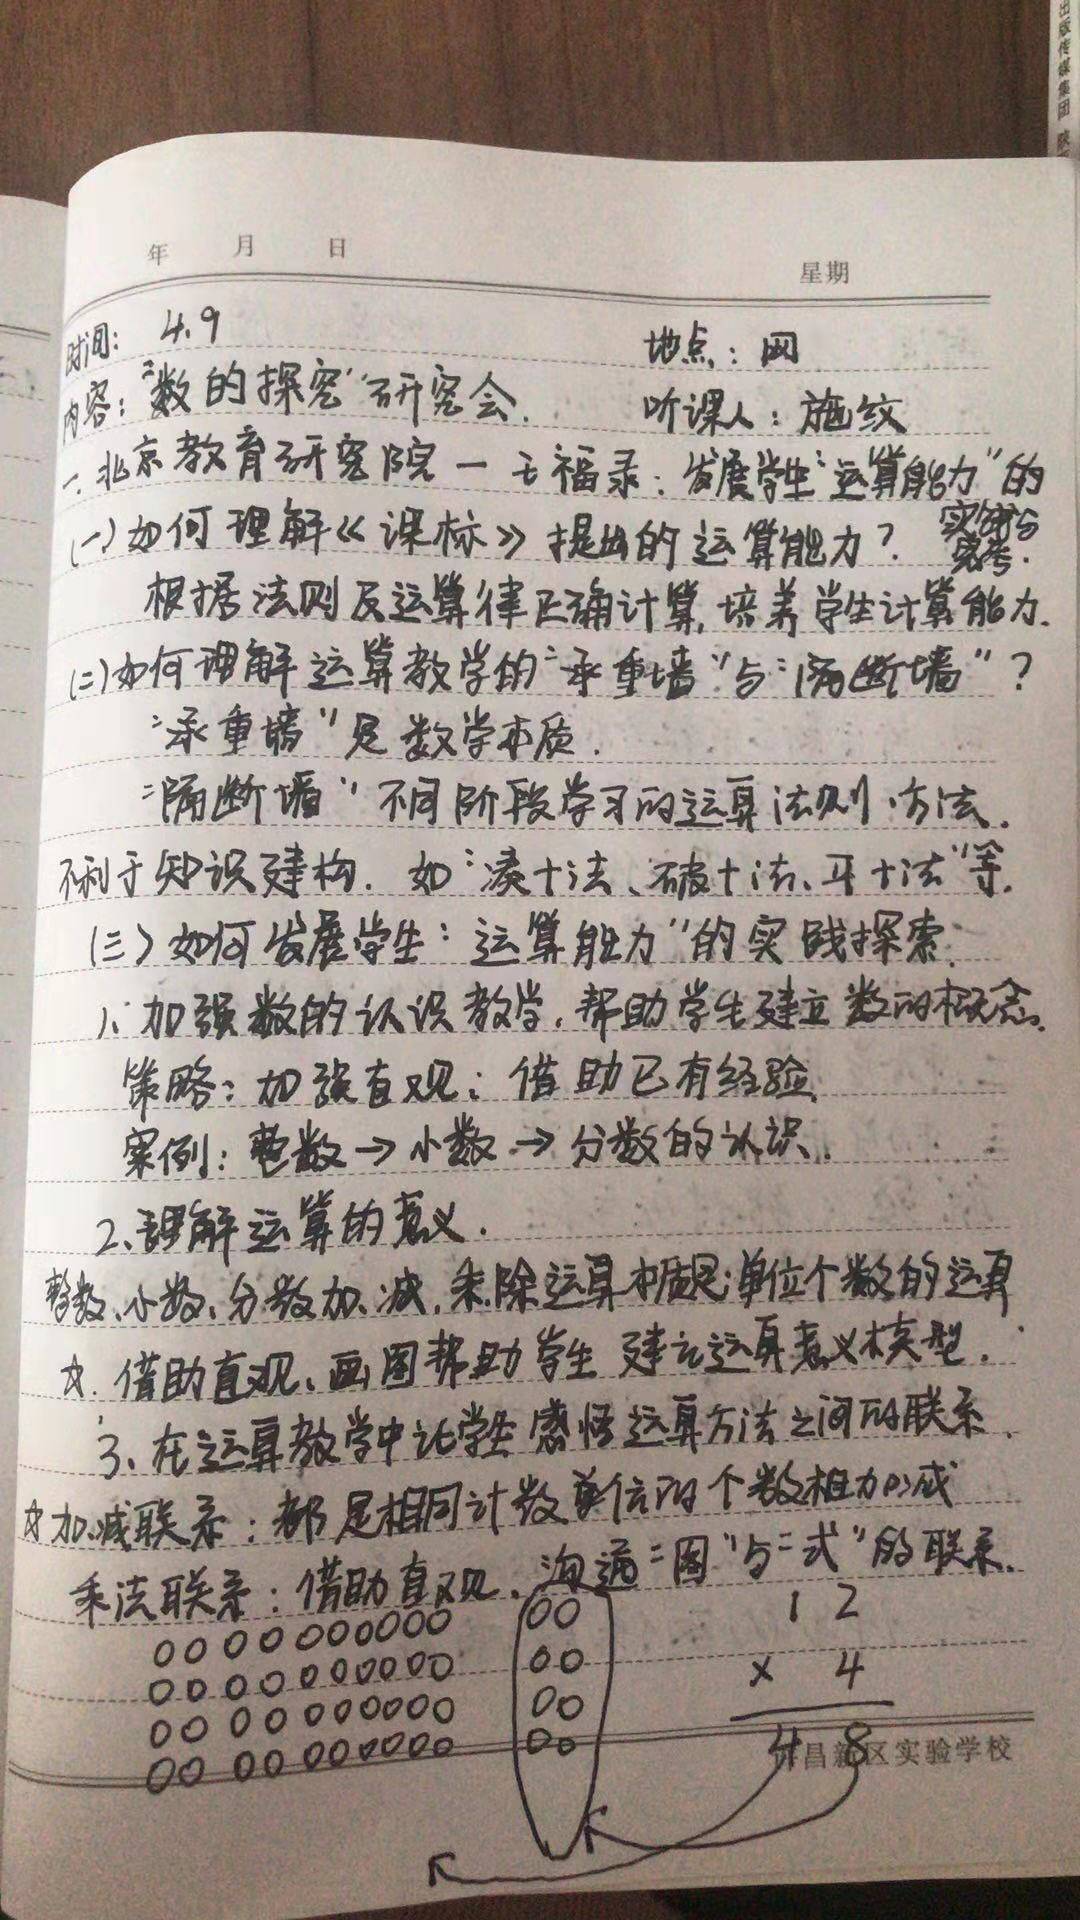 出版传媒集团
年 月 日 星期
时间: 4.9 地点: 网
内容:“数的探究”研究会. 听课人: 施纹
一.北京教育研究院 — 王福录: 发展学生“运算能力”的
(一)如何理解《课标》提出的运算能力?
根据法则及运算律正确计算,培养学生计算能力.
(二)如何理解运算教学的“承重墙”与“隔断墙”?
“承重墙”是数学本质.
“隔断墙”不同阶段学习的运算法则、方法.
不利于知识建构. 如“凑十法、破十法、平十法”等.
(三)如何发展学生“运算能力”的实践探索.
1、加强数的认识教学,帮助学生建立数的概念.
策略:加强直观;借助已有经验
案例:整数→小数→分数的认识.
2、理解运算的意义.
整数、小数、分数加、减,乘.除运算本质是:单位个数的运算
☆.借助直观、画图帮助学生建立运算意义模型.
3、在运算教学中让学生感悟运算方法之间的联系.
☆加减联系:都是相同计数单位的个数相加减
乘法联系:借助直观,沟通“图”与“式”的联系.
12
× 4
48
昌新区实验学校